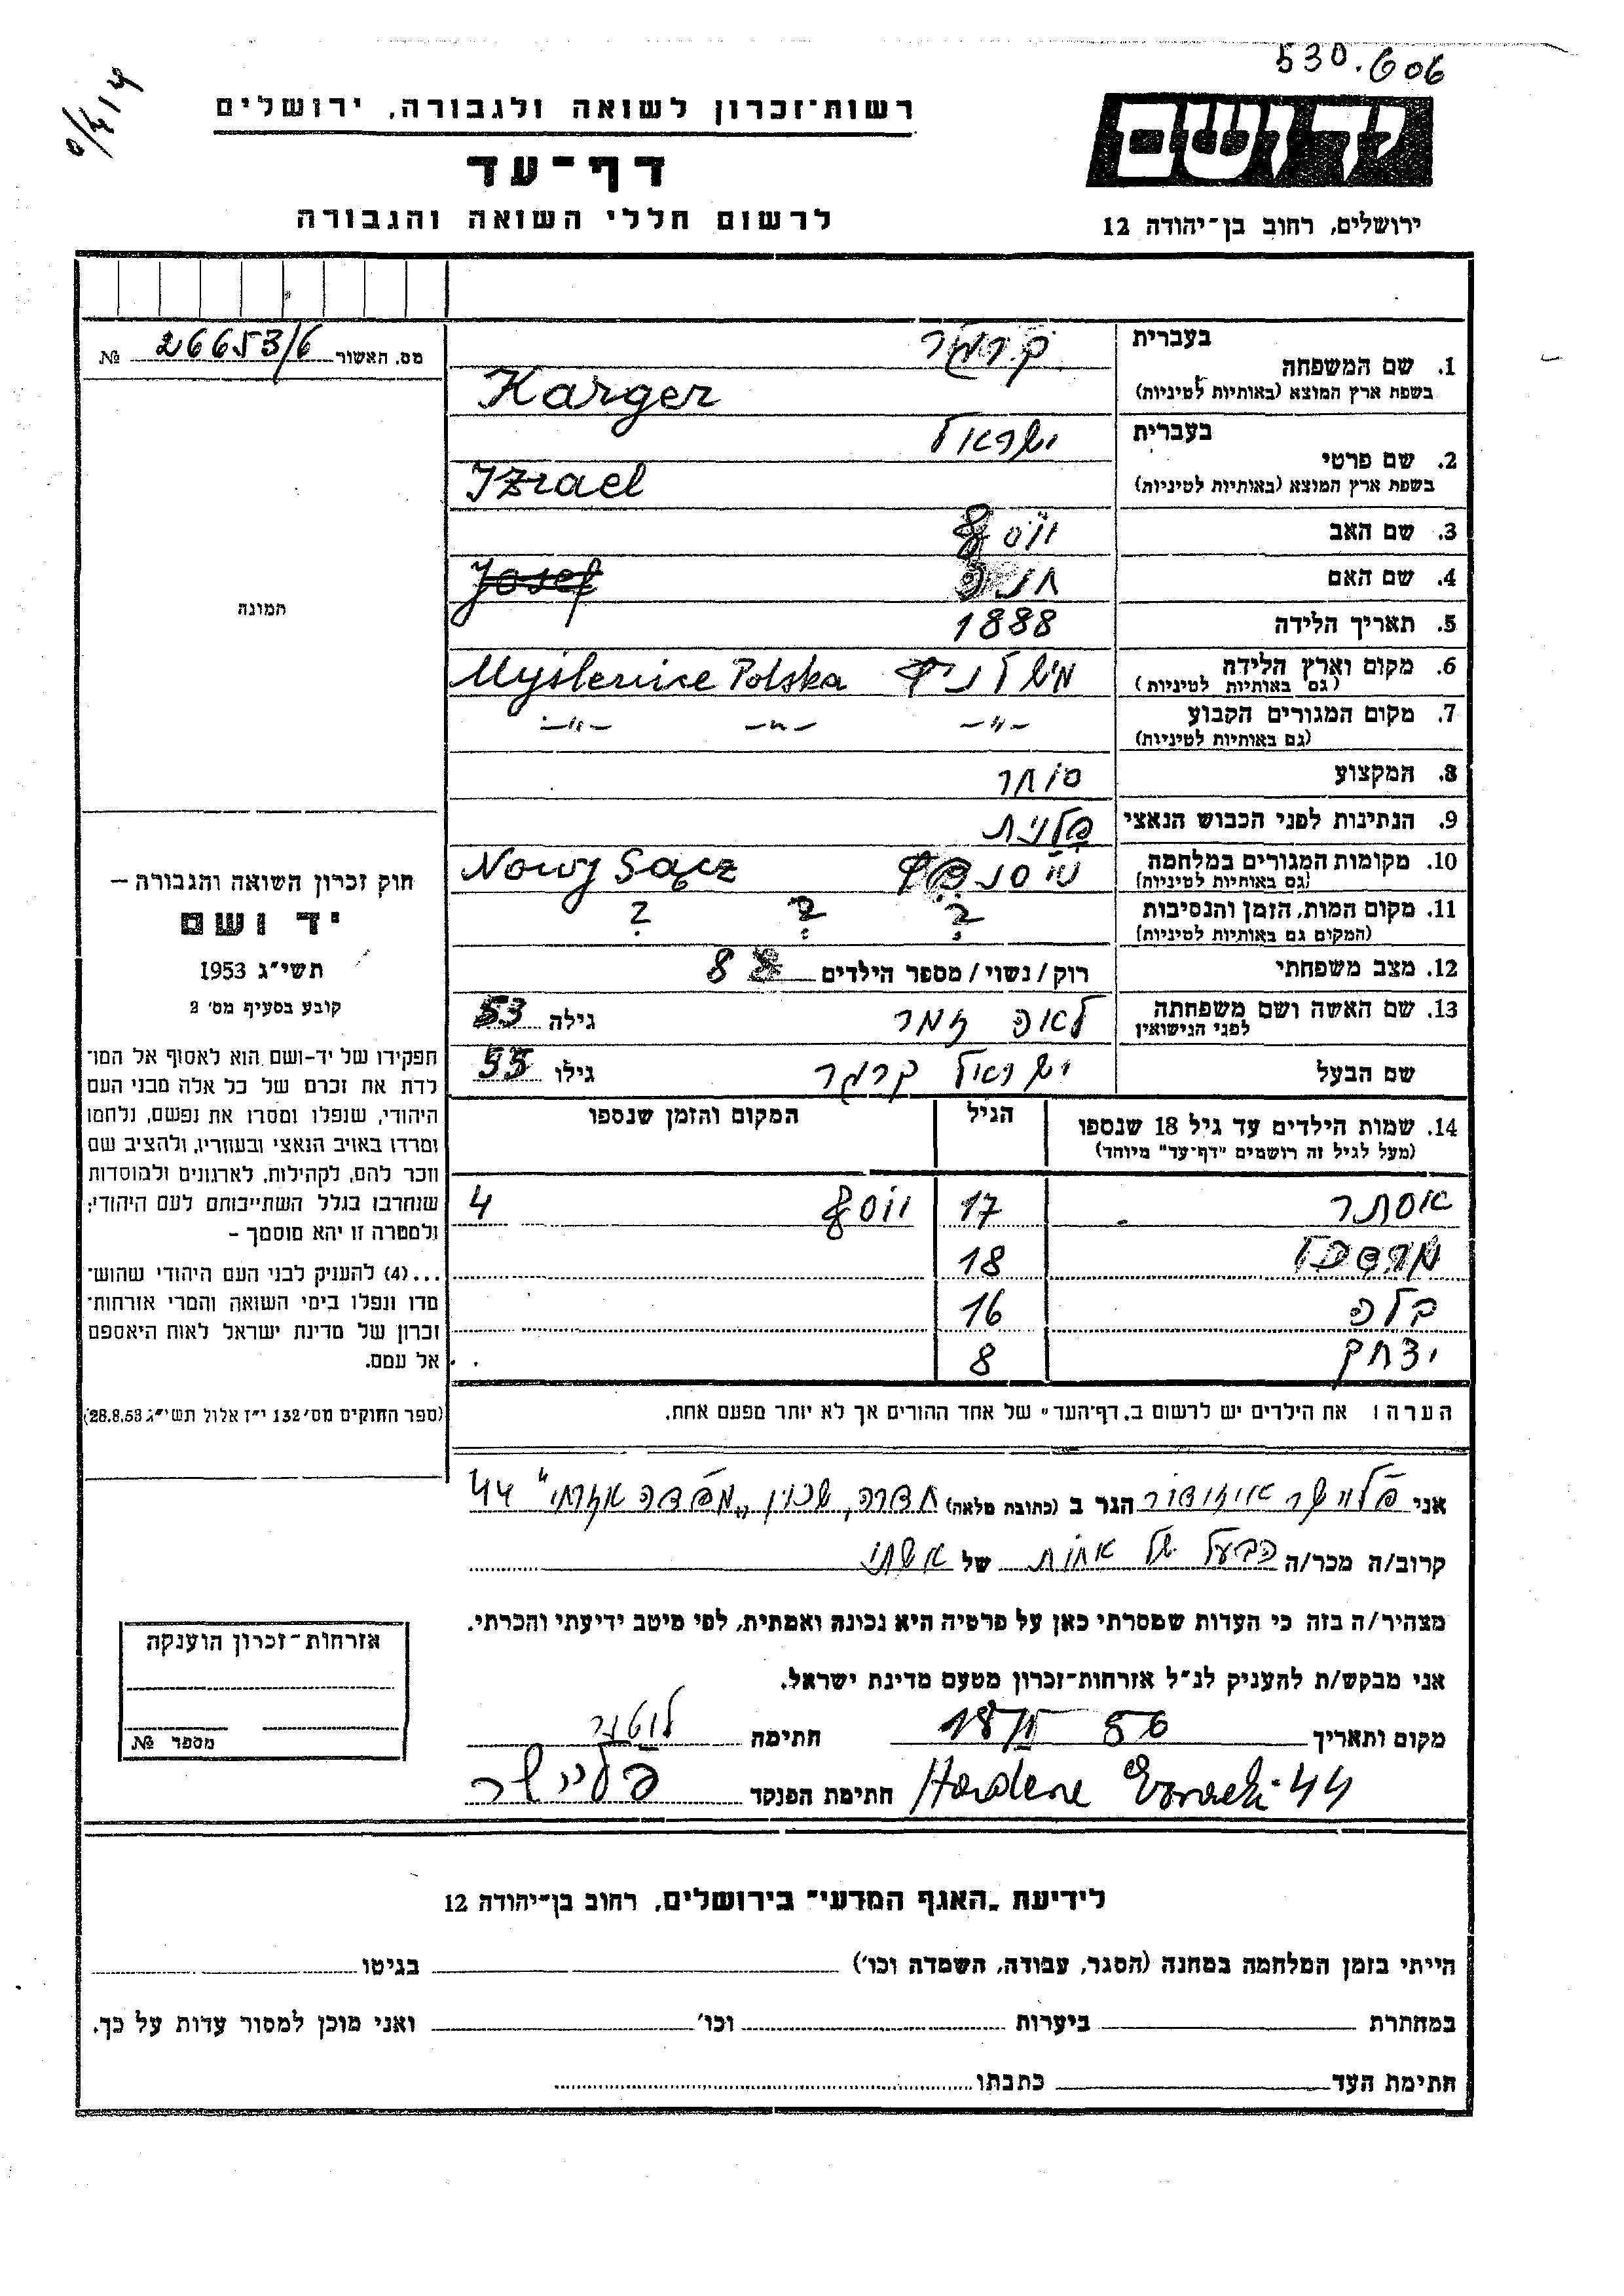 530.606
רשות־זכרון לשואה ולגבורה, ירושלים
דף־עד
לרשום חללי השואה והגבורה
ידושם
ירושלים, רחוב בן־יהודה 12
מס. האשור 26653/6 №
תמונה
חוק זכרון השואה והגבורה –
יד ושם
תשי״ג 1953
קובע בסעיף מס׳ 2
תפקידו של יד-ושם הוא לאסוף אל המו־
לדת את זכרם של כל אלה מבני העם
היהודי, שנפלו ומסרו את נפשם, נלחמו
ומרדו באויב הנאצי ובעוזריו, ולהציב שם
וזכר להם, לקהילות, לארגונים ולמוסדות
שנחרבו בגלל השתייכותם לעם היהודי;
ולמטרה זו יהא מוסמך –
...(4) להעניק לבני העם היהודי שהוש־
מדו ונפלו בימי השואה והמרי אזרחות־
זכרון של מדינת ישראל לאות היאספם
אל עמם.
(ספר החוקים מס׳ 132 י״ז אלול תשי״ג 28.8.53)
בעברית קרגר
1. שם המשפחה
בשפת ארץ המוצא (באותיות לטיניות) Karger
בעברית ישראל
2. שם פרטי
בשפת ארץ המוצא (באותיות לטיניות) Izrael
3. שם האב יוסף
4. שם האם חנה Josef
5. תאריך הלידה 1888
6. מקום וארץ הלידה Myślenice Polska
(גם באותיות לטיניות)
7. מקום המגורים הקבוע –״– –״– –״–
(גם באותיות לטיניות)
8. המקצוע סוחר
9. הנתינות לפני הכבוש הנאצי פלנית
10. מקומות המגורים במלחמה Nowy Sącz
(גם באותיות לטיניות)
11. מקום המות, הזמן והנסיבות ? ? ?
(המקום גם באותיות לטיניות)
12. מצב משפחתי רוק/נשוי/מספר הילדים 8
13. שם האשה ושם משפחתה לאה זמר גילה 53
לפני הנישואין
שם הבעל ישראל קרגר גילו 55
14. שמות הילדים עד גיל 18 שנספו הגיל המקום והזמן שנספו
(מעל לגיל זה רושמים "דף־עד" מיוחד)
אסתר 17 יוסף 4
18
בלה 16
יצחק 8
הערה: את הילדים יש לרשום ב„דף־העד" של אחד ההורים אך לא יותר מפעם אחת.
אני פליישר הגר ב (כתובת מלאה) חדרה, שכון 44
קרוב/ה מכר/ה הבעל של אחות של אשתי
מצהיר/ה בזה כי העדות שמסרתי כאן על פרטיה היא נכונה ואמתית, לפי מיטב ידיעתי והכרתי.
אני מבקש/ת להעניק לנ״ל אזרחות־זכרון מטעם מדינת ישראל.
מקום ותאריך 18 56 חתימה
חתימת הפנקד פליישר
44
אזרחות־זכרון הוענקה
מספר №
לידיעת „האגף המדעי" בירושלים, רחוב בן־יהודה 12
הייתי בזמן המלחמה במחנה (הסגר, עבודה, השמדה וכו׳) בגיטו
במחתרת ביערות וכו׳ ואני מוכן למסור עדות על כך.
חתימת העד כתבתו